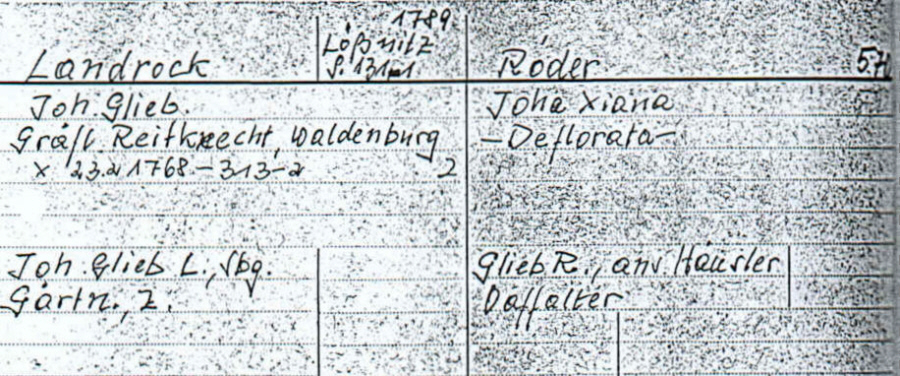 1789
Lößnitz
S. 131-1
Landrock
Röder
Joh. Glieb.
Gräfl. Reitknecht, Waldenburg
x 23.2 1768 - 313-2 2
Joha Xiana
-Deflorata-
Joh. Glieb L., Sbg.
Gärtn., Z.
Glieb R., ans. Häusler
Daffalter